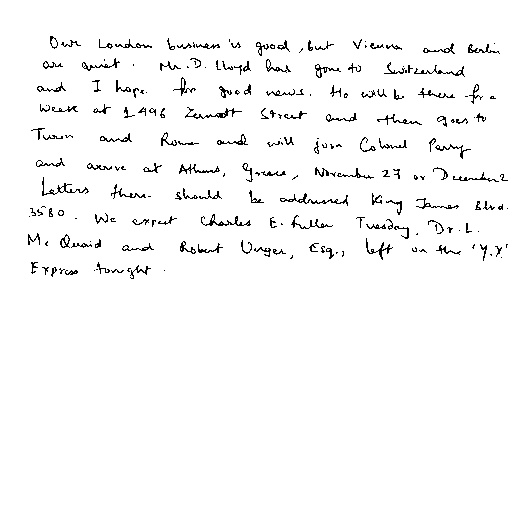 Our London business is good, but Vienna and Berlin
are quiet. Mr. D. Lloyd has gone to Switzerland
and I hope for good news. He will be there for a
week at 1496 Zermott Street and then goes to
Turin and Rome and will join Colonel Parry
and arrive at Athens, Greece, November 27 or December 2
Letters there should be addressed King James Blvd.
3580. We expect Charles E. Fuller Tuesday. Dr. L.
Mc Quaid and Robert Unger, Esq., left on the 'Y.X'
Express tonight.